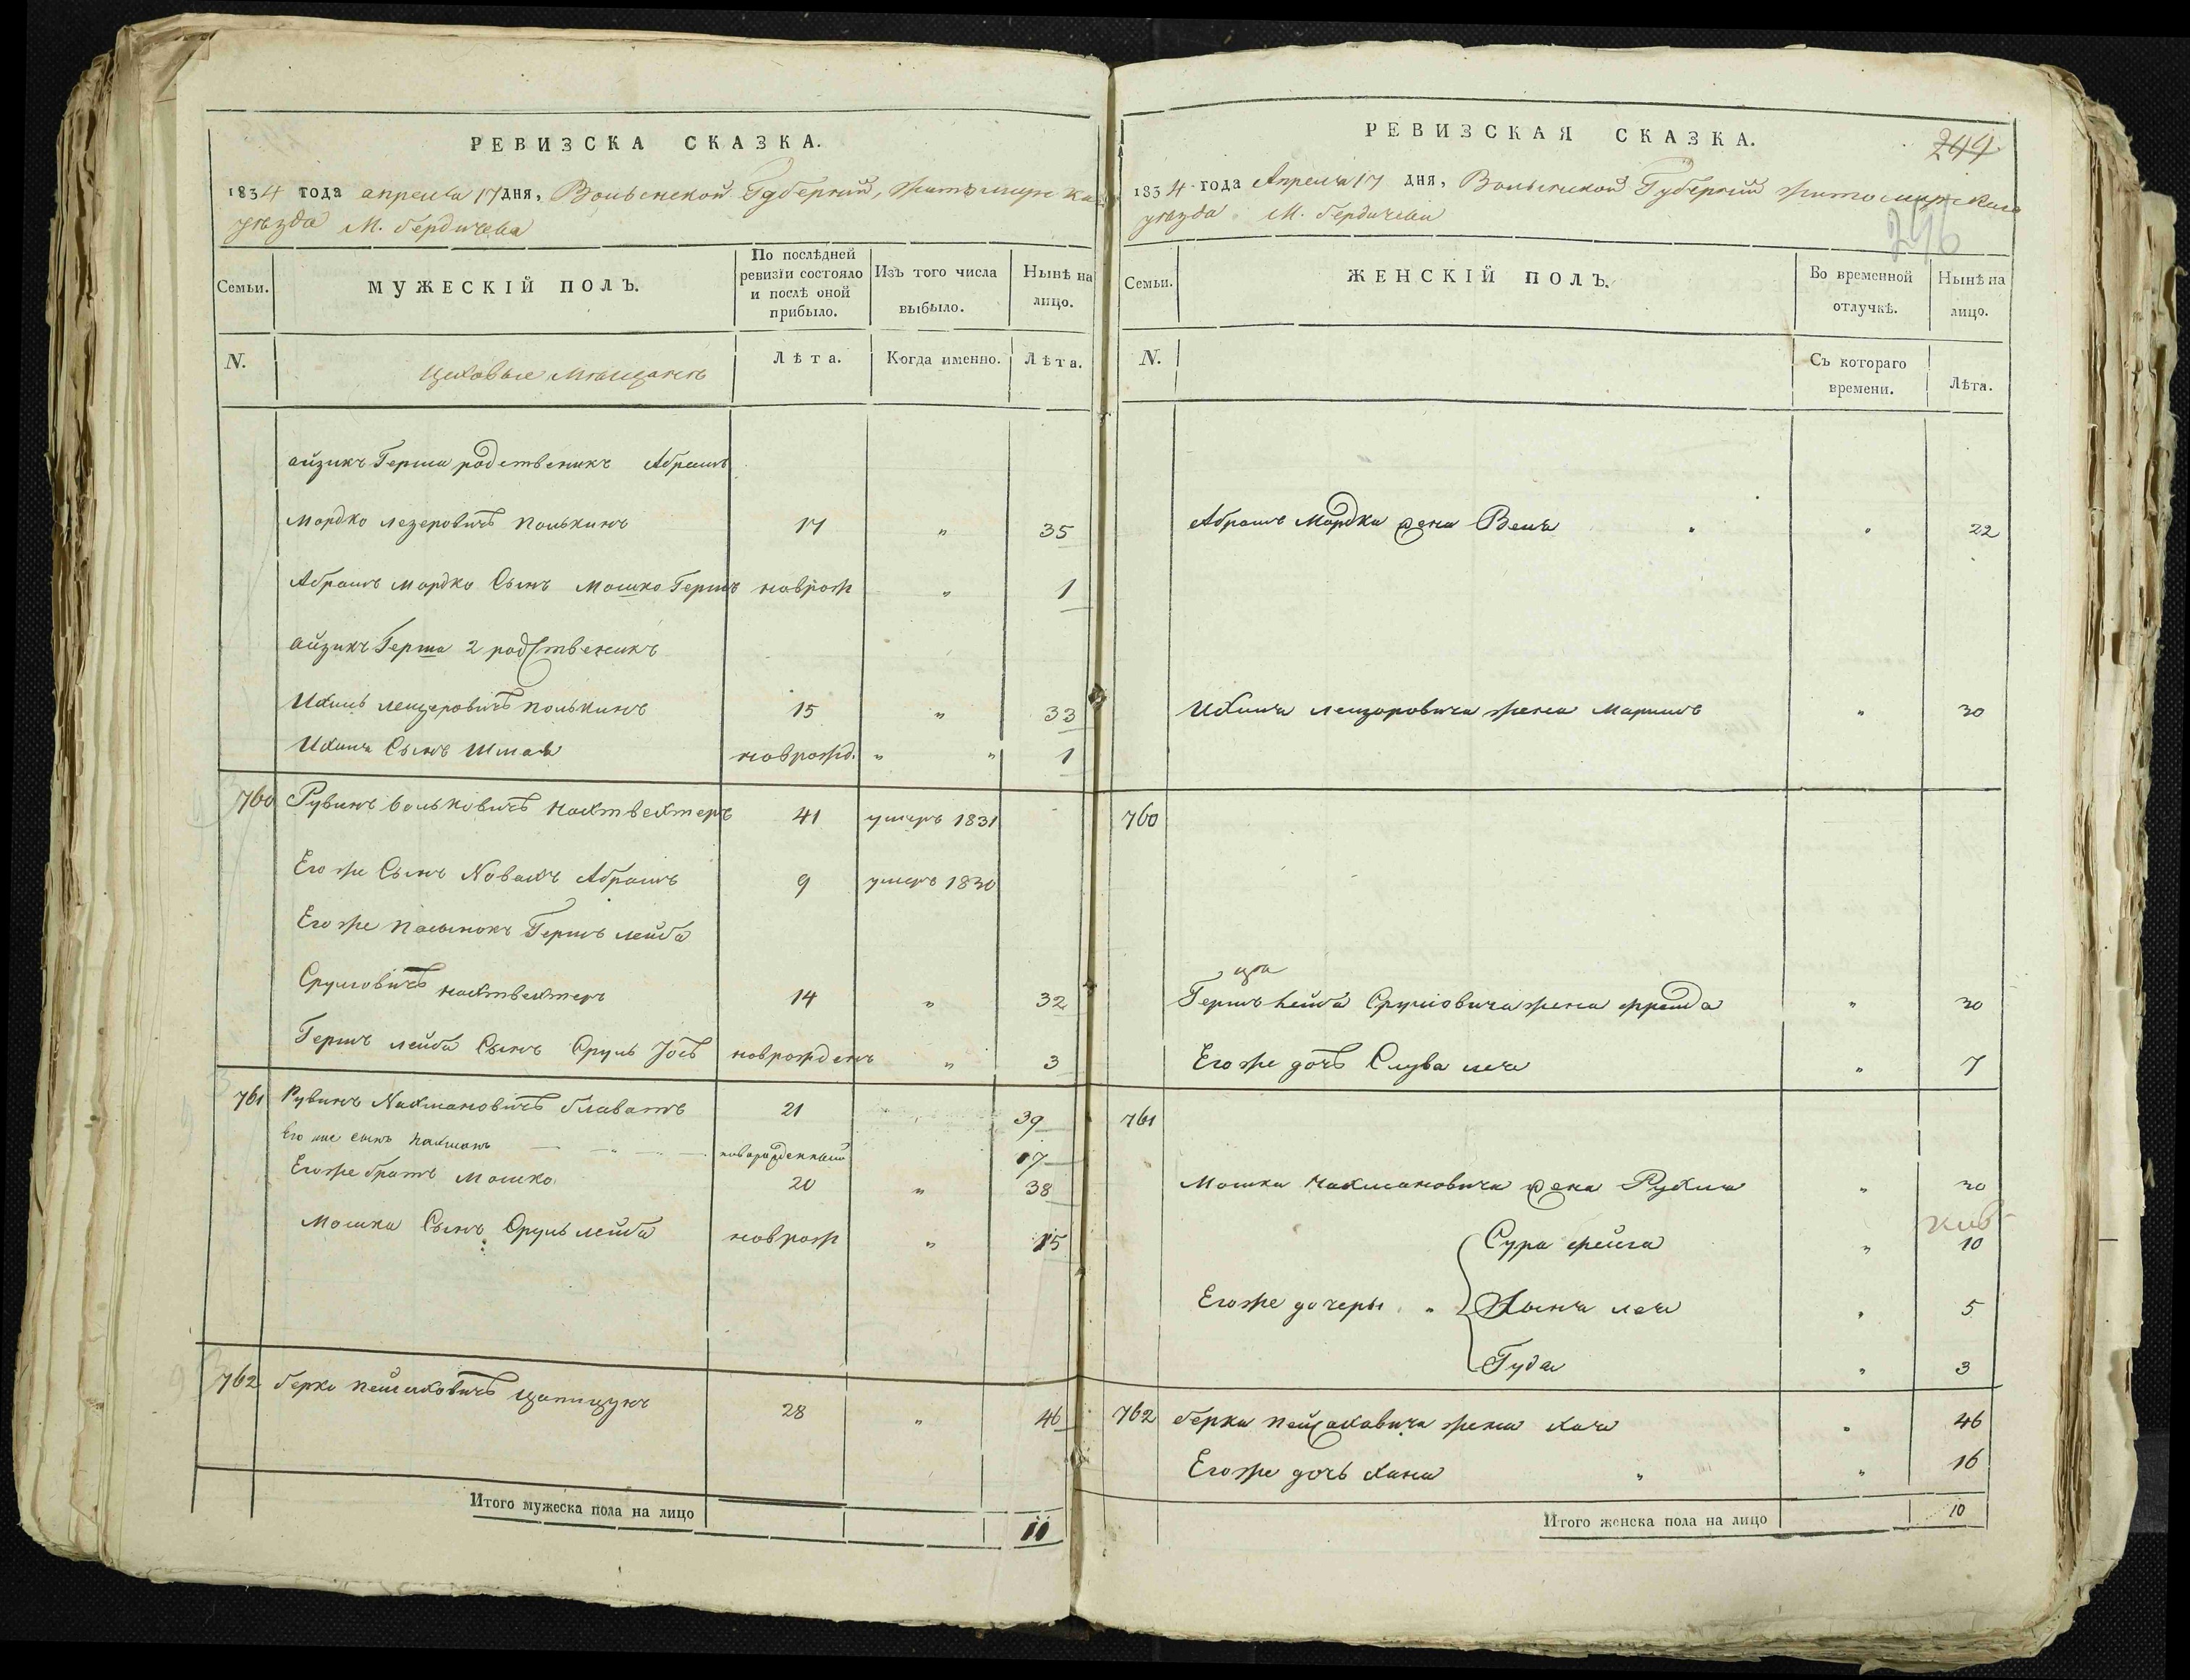 РЕВИЗСКА СКАЗКА.
1834 года апреля 17 дня, Волынской Губернии, Житомирска
уезда М. Бердичева
Семьи.
МУЖЕСКІЙ ПОЛЪ.
По послѣдней ревизіи состояло и послѣ оной прибыло.
Изъ того числа выбыло.
Нынѣ на лицо.
N.
Цеховые Мещане
Лѣта.
Когда именно.
Лѣта.
айзикъ Герша родственикъ Абрамъ
Мордко лезеровичъ Полькинъ 17 " 35
Абрамъ Мордко Сынъ Мошко Гершъ новрож " 1
айзикъ Герша 2 родственикъ
Ихиль лейзеровичъ полькинъ 15 " 33
Ихиля Сынъ Шмая новрожд. " " 1
760 Рувинъ вольковичъ нахтвехтеръ 41 умеръ 1831
Его же Сынъ Новахъ Абрамъ 9 умеръ 1830
Его же пасынокъ Гершъ лейба
Срулговичъ нахтвехтеръ 14 " 32
Гершъ лейба Сынъ Сруль Іосъ новрожденъ " 3
761 Рувинъ Нахмановичъ Главатъ 21 39
Его же сынъ Нахманъ новорожденный 17
Его же братъ Мошко 20 " 38
Мошка Сынъ Сруль лейба новрож " 15
762 берко пейсаховичъ Цапицунъ 28 " 46
Итого мужеска пола на лицо 11
РЕВИЗСКАЯ СКАЗКА.
249
246
1834 года Апреля 17 дня, Волынской Губернии Житомирскаго
уезда М. Бердичева
Семьи.
ЖЕНСКІЙ ПОЛЪ.
Во временной отлучкѣ.
Нынѣ на лицо.
N.
Съ котораго времени.
Лѣта.
Абрамъ Мордки жена Веля " " 22
Ихиля лейзоровича жена Маримъ " 30
760
Гершъ Лейба Срулговича жена фрейда " 30
Его же дочъ Слува лея " 7
761
Мошка нахмановича жена Рухля " 30
Сура фейга " 10
Его же дочеры " Хына лея " 5
Гуда " 3
762 берка пейсаховича жена хая " 46
Его же дочь хана " " 16
Итого женска пола на лицо 10